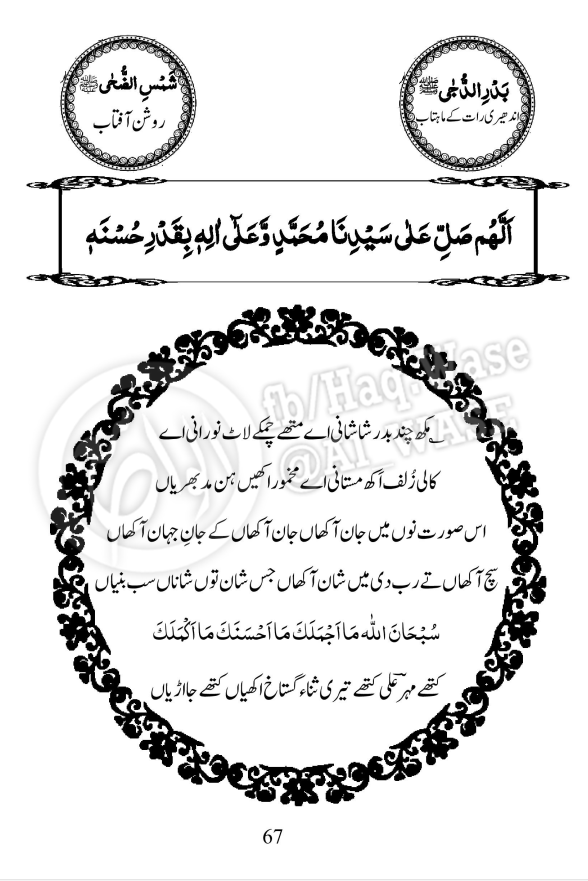 بَدْرِ الدُّجٰی ﷺ
اندھیری رات کے ماہتاب
شَمْسِ الضُّحٰی ﷺ
روشن آفتاب
اَللّٰهُم صَلِّ عَلٰى سَيِّدِنَا مُحَمَّدٍ وَّعَلٰٓى اٰلِهٖ بِقَدْرِ حُسْنَهٖ
مکھ چند بدر شاشانی اے متھے چمکے لاٹ نورانی اے
کالی زُلف اکھ مستانی اے مخمور اکھیں ہن مد بھریاں
اس صورت نوں میں جان آکھاں جان آکھاں کے جانِ جہان آکھاں
سچ آکھاں تے رب دی میں شان آکھاں جس شان توں شاناں سب بنیاں
سُبْحَانَ اللّٰه مَا اَجْمَلَكَ مَا اَحْسَنَكَ مَا اَكْمَلَكَ
کتھے مہر علی کتھے تیری ثناء گستاخ اکھیاں کتھے جا اڑیاں
fb/Haq.Wase
@AL WASE
67